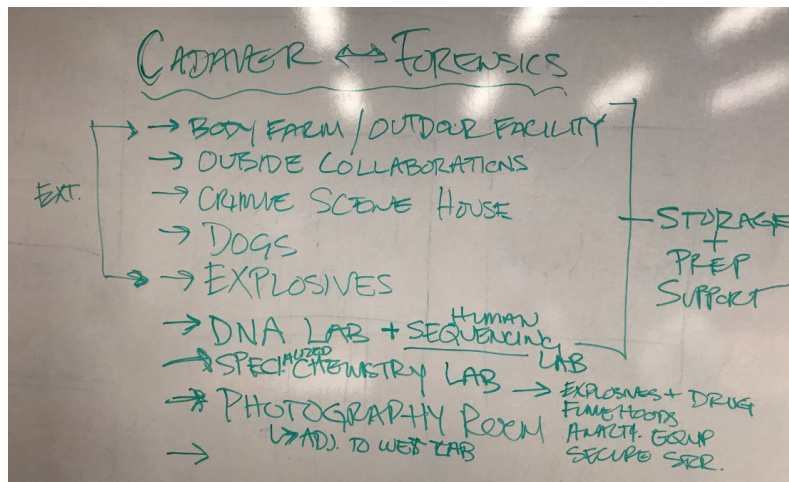 CADAVER ↔ FORENSICS
→ BODY FARM / OUTDOOR FACILITY
→ OUTSIDE COLLABORATIONS
EXT.
→ CRIME SCENE HOUSE
→ DOGS
→ EXPLOSIVES
STORAGE
+
PREP
SUPPORT
→ DNA LAB + HUMAN SEQUENCING LAB
→ SPECIALIZED CHEMISTRY LAB → EXPLOSIVES + DRUG
FUME HOODS
ANALYT. EQUIP
SECURE STR.
→ PHOTOGRAPHY ROOM
↳ ADJ. TO WET LAB
→